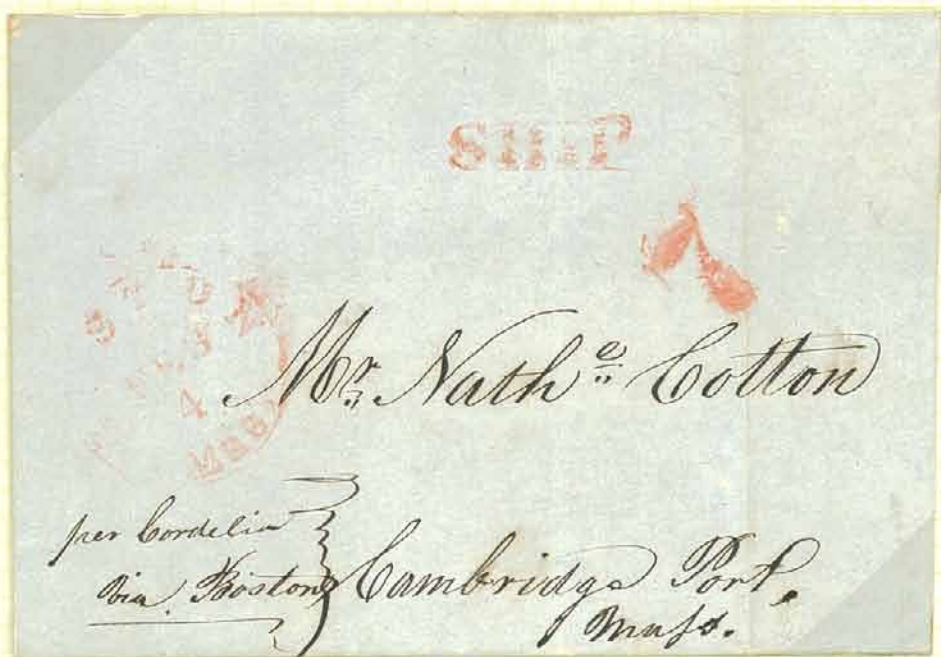 SHIP
7
4
Mr. Nathe Cotton
per Cordelia
via Boston
Cambridge Port,
Mass.